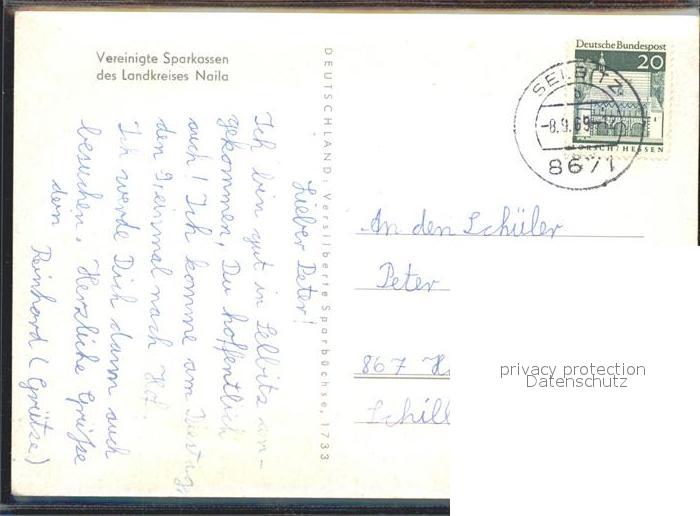 Vereinigte Sparkassen
des Landkreises Naila
DEUTSCHLAND: Versilberte Sparbüchse, 1733
Deutsche Bundespost
20
LORSCH/HESSEN
SELBITZ
b
-8.9.69-
8671
Lieber Peter!
Ich bin gut in Selbitz an-
gekommen, Du hoffentlich
auch! Ich komme am Dienstag,
den 9. einmal nach Hof.
Ich werde Dich dann auch
besuchen. Herzliche Grüße
dein Reinhard (Grütze)
An den Schüler
Peter
867 H
Schill
privacy protection
Datenschutz